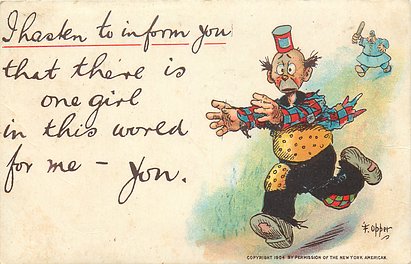 I hasten to inform you
that there is
one girl
in this world
for me - You.
F. Opper
COPYRIGHT 1904 BY PERMISSION OF THE NEW YORK AMERICAN.